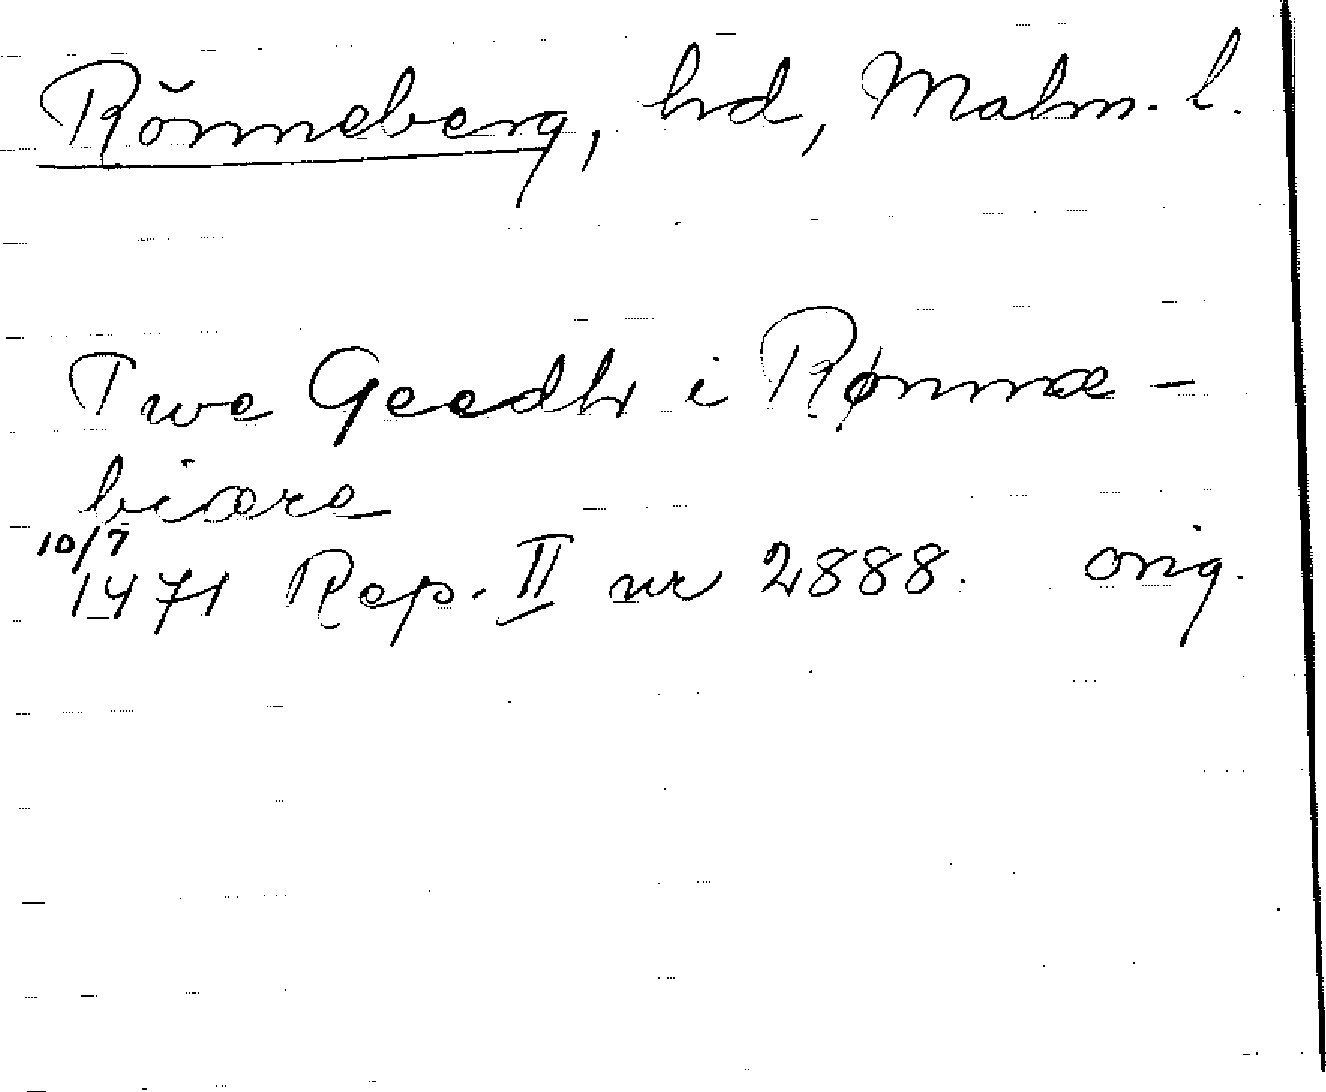 Rönneberg, hd, Malm. l.
Twe Geedh i Rønnæ-
biære
10/7
1471 Rep. II nr 2888. orig.